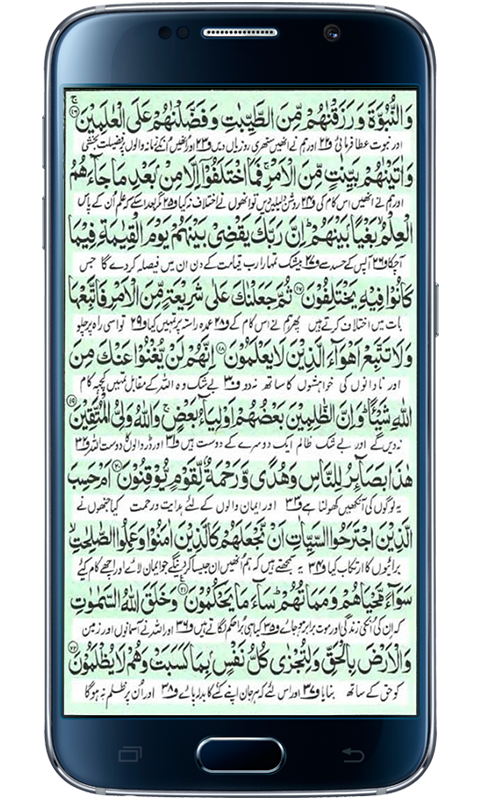 وَالنُّبُوَّةَ وَرَزَقْنٰهُمْ مِّنَ الطَّيِّبٰتِ وَفَضَّلْنٰهُمْ عَلَى الْعٰلَمِيْنَ ۝۱۶
اور نبوت عطا فرمائی و۲۲ اور ہم نے انھیں ستھری روزیاں دیں و۲۳ اور انھیں انکے زمانہ والوں پر فضیلت بخشی
وَاٰتَيْنٰهُمْ بَيِّنٰتٍ مِّنَ الْاَمْرِ فَمَا اخْتَلَفُوْۤا اِلَّا مِنْۢ بَعْدِ مَا جَآءَهُمُ
اور ہم نے انھیں اس کام کی و۲۴ روشن دلیلیں دیں تو انھوں نے اختلاف نہ کیا و۲۵ مگر بعد اسکے کہ علم ان کے پاس
الْعِلْمُ بَغْيًۢا بَيْنَهُمْ اِنَّ رَبَّكَ يَقْضِيْ بَيْنَهُمْ يَوْمَ الْقِيٰمَةِ فِيْمَا
آچکا و۲۶ آپس کے حسد سے و۲۷ بیشک تمہارا رب قیامت کے دن ان میں فیصلہ کردے گا جس
كَانُوْا فِيْهِ يَخْتَلِفُوْنَ ۝۱۷ ثُمَّ جَعَلْنٰكَ عَلٰى شَرِيْعَةٍ مِّنَ الْاَمْرِ فَاتَّبِعْهَا
بات میں اختلاف کرتے ہیں پھر ہم نے اس کام کے و۲۸ عمدہ راستہ پر تمہیں کیا و۲۹ تو اسی راہ پر چلو
وَلَا تَتَّبِعْ اَهْوَآءَ الَّذِيْنَ لَا يَعْلَمُوْنَ ۝۱۸ اِنَّهُمْ لَنْ يُّغْنُوْا عَنْكَ مِنَ
اور نادانوں کی خواہشوں کا ساتھ نہ دو و۳۰ بے شک وہ اللہ کے مقابل تمہیں کچھ کام
اللّٰهِ شَيْـًٔا وَاِنَّ الظّٰلِمِيْنَ بَعْضُهُمْ اَوْلِيَآءُ بَعْضٍ وَاللّٰهُ وَلِيُّ الْمُتَّقِيْنَ ۝۱۹
نہ دیں گے اور بے شک ظالم ایک دوسرے کے دوست ہیں و۳۱ اور ڈر والوں کا دوست اللہ و۳۲
هٰذَا بَصَآئِرُ لِلنَّاسِ وَهُدًى وَّرَحْمَةٌ لِّقَوْمٍ يُّوْقِنُوْنَ ۝۲۰ اَمْ حَسِبَ
یہ لوگوں کی آنکھیں کھولنا ہے و۳۳ اور ایمان والوں کے لئے ہدایت و رحمت کیا جنھوں نے
الَّذِيْنَ اجْتَرَحُوا السَّيِّاٰتِ اَنْ نَّجْعَلَهُمْ كَالَّذِيْنَ اٰمَنُوْا وَعَمِلُوا الصّٰلِحٰتِ
برائیوں کا ارتکاب کیا و۳۴ یہ سمجھتے ہیں کہ ہم انھیں ان جیسا کردینگے جو ایمان لائے اور اچھے کام کئے
سَوَآءً مَّحْيَاهُمْ وَمَمَاتُهُمْ سَآءَ مَا يَحْكُمُوْنَ ۝۲۱ وَخَلَقَ اللّٰهُ السَّمٰوٰتِ
کہ ان کی انکی زندگی اور موت برابر ہو جائے و۳۵ کیا ہی برا حکم لگاتے ہیں و۳۶ اور اللہ نے آسمانوں اور زمین
وَالْاَرْضَ بِالْحَقِّ وَلِتُجْزٰى كُلُّ نَفْسٍۢ بِمَا كَسَبَتْ وَهُمْ لَا يُظْلَمُوْنَ ۝۲۲
کو حق کے ساتھ بنایا و۳۷ اور اس لئے کہ ہر جان اپنے کئے کا بدلہ پائے و۳۸ اور ان پر ظلم نہ ہو گا